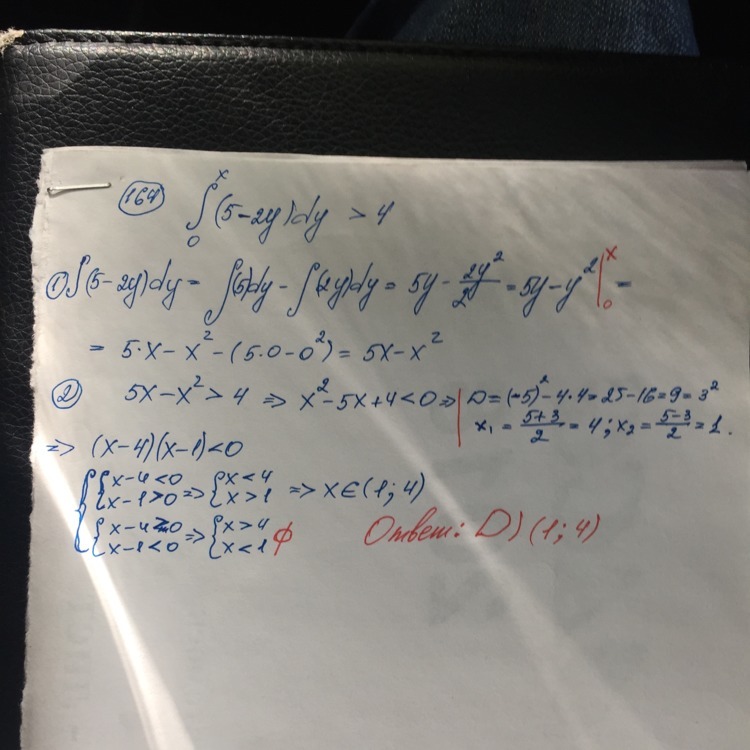 164 ∫₀ˣ(5-2y)dy > 4
① ∫(5-2y)dy = ∫(5)dy - ∫(2y)dy = 5y - 2y²/2 = 5y - y² |₀ˣ =
= 5·x - x² - (5·0 - 0²) = 5x - x²
② 5x - x² > 4 ⇒ x² - 5x + 4 < 0 ⇒ | D = (-5)² - 4·4 = 25 - 16 = 9 = 3²
x₁ = (5+3)/2 = 4; x₂ = (5-3)/2 = 1.
⇒ (x-4)(x-1) < 0
{ { x-4<0 ⇒ { x<4
{ x-1>0 { x>1 ⇒ x∈(1; 4)
{ x-4>0 ⇒ { x>4
{ x-1<0 { x<1 ∅ Ответ: D) (1; 4)